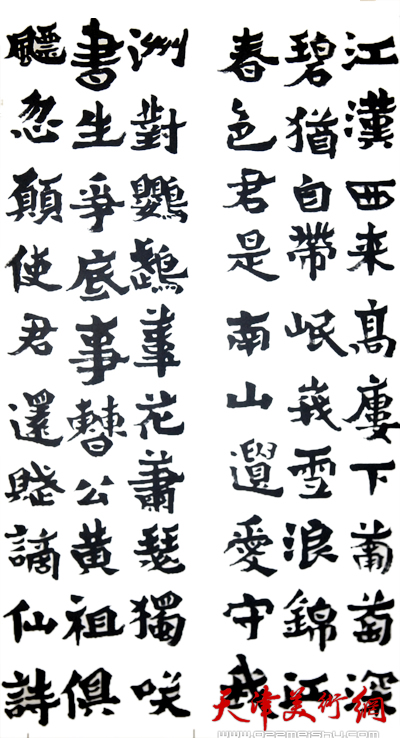 江漢西来髙廔下葡萄深
碧猶自帶岷峩雪浪錦江
春色君是南山遺愛守我
洲對鸚鵡葦花蕭瑟獨咲
書生爭底事曹公黄祖俱
飃忽願使君還賦謫仙詩
天津美術網